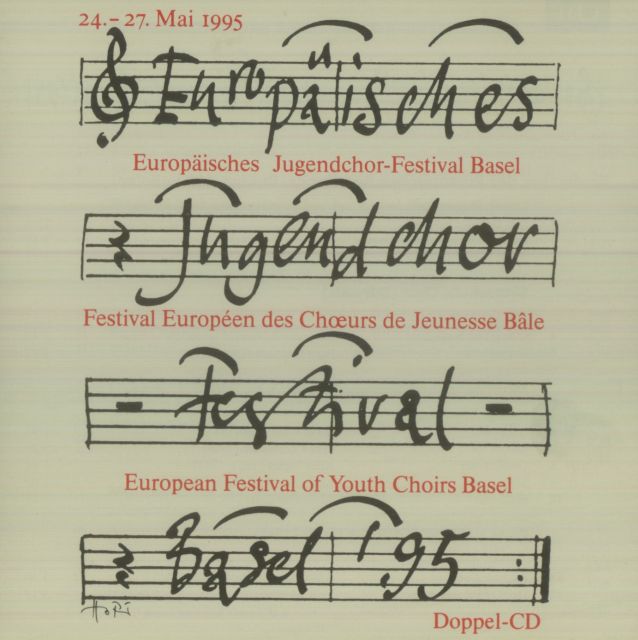 24.–27. Mai 1995
Europäisches
Europäisches Jugendchor-Festival Basel
Jugendchor
Festival Européen des Chœurs de Jeunesse Bâle
- festival -
European Festival of Youth Choirs Basel
Basel '95
HoRi
Doppel-CD